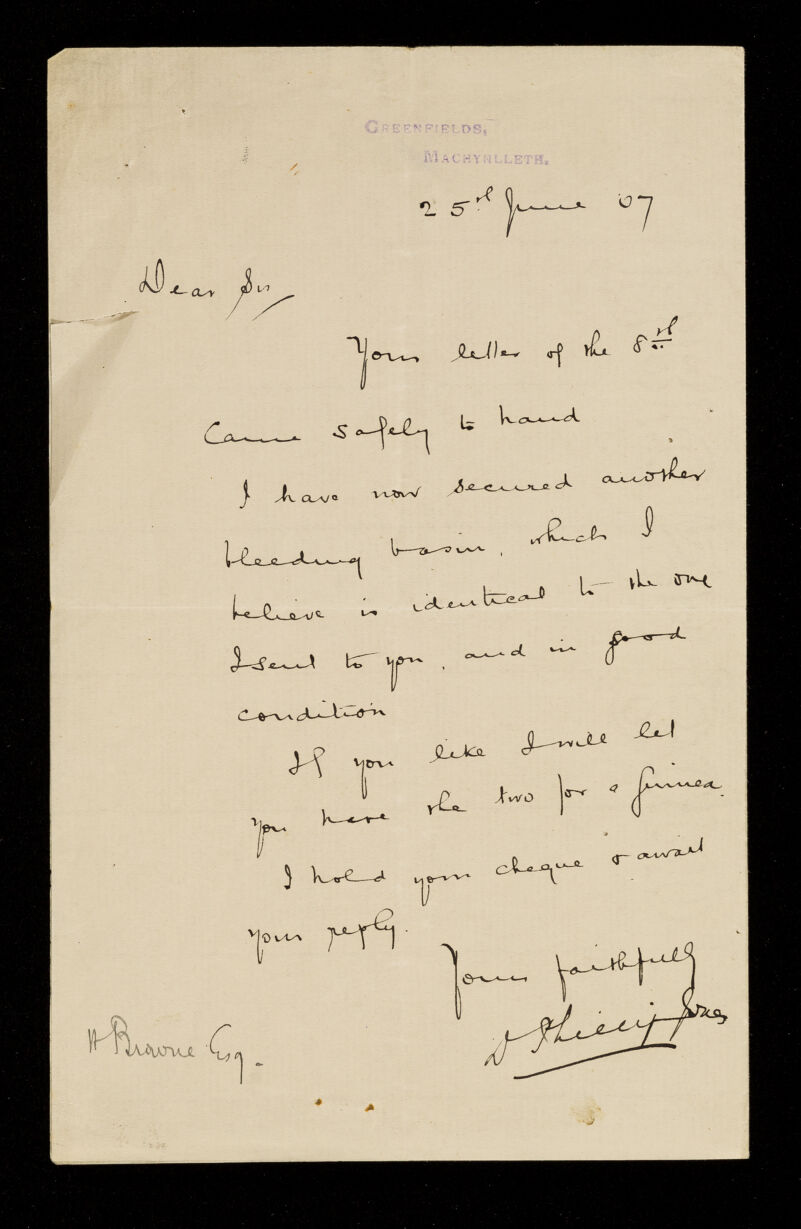 GREENFIELDS,
MACHYNLLETH.
25th June 07
Dear Sir
Your letter of the 8th
came safely to hand
I have now secured another
bleeding basin, which I
believe is identical to the one
I sent to you, and in good
condition
If you like I will let
you have the two for a guinea.
I hold your cheque & await
your reply.
Yours faithfully
D Phillip Jones
H Browne Esq.